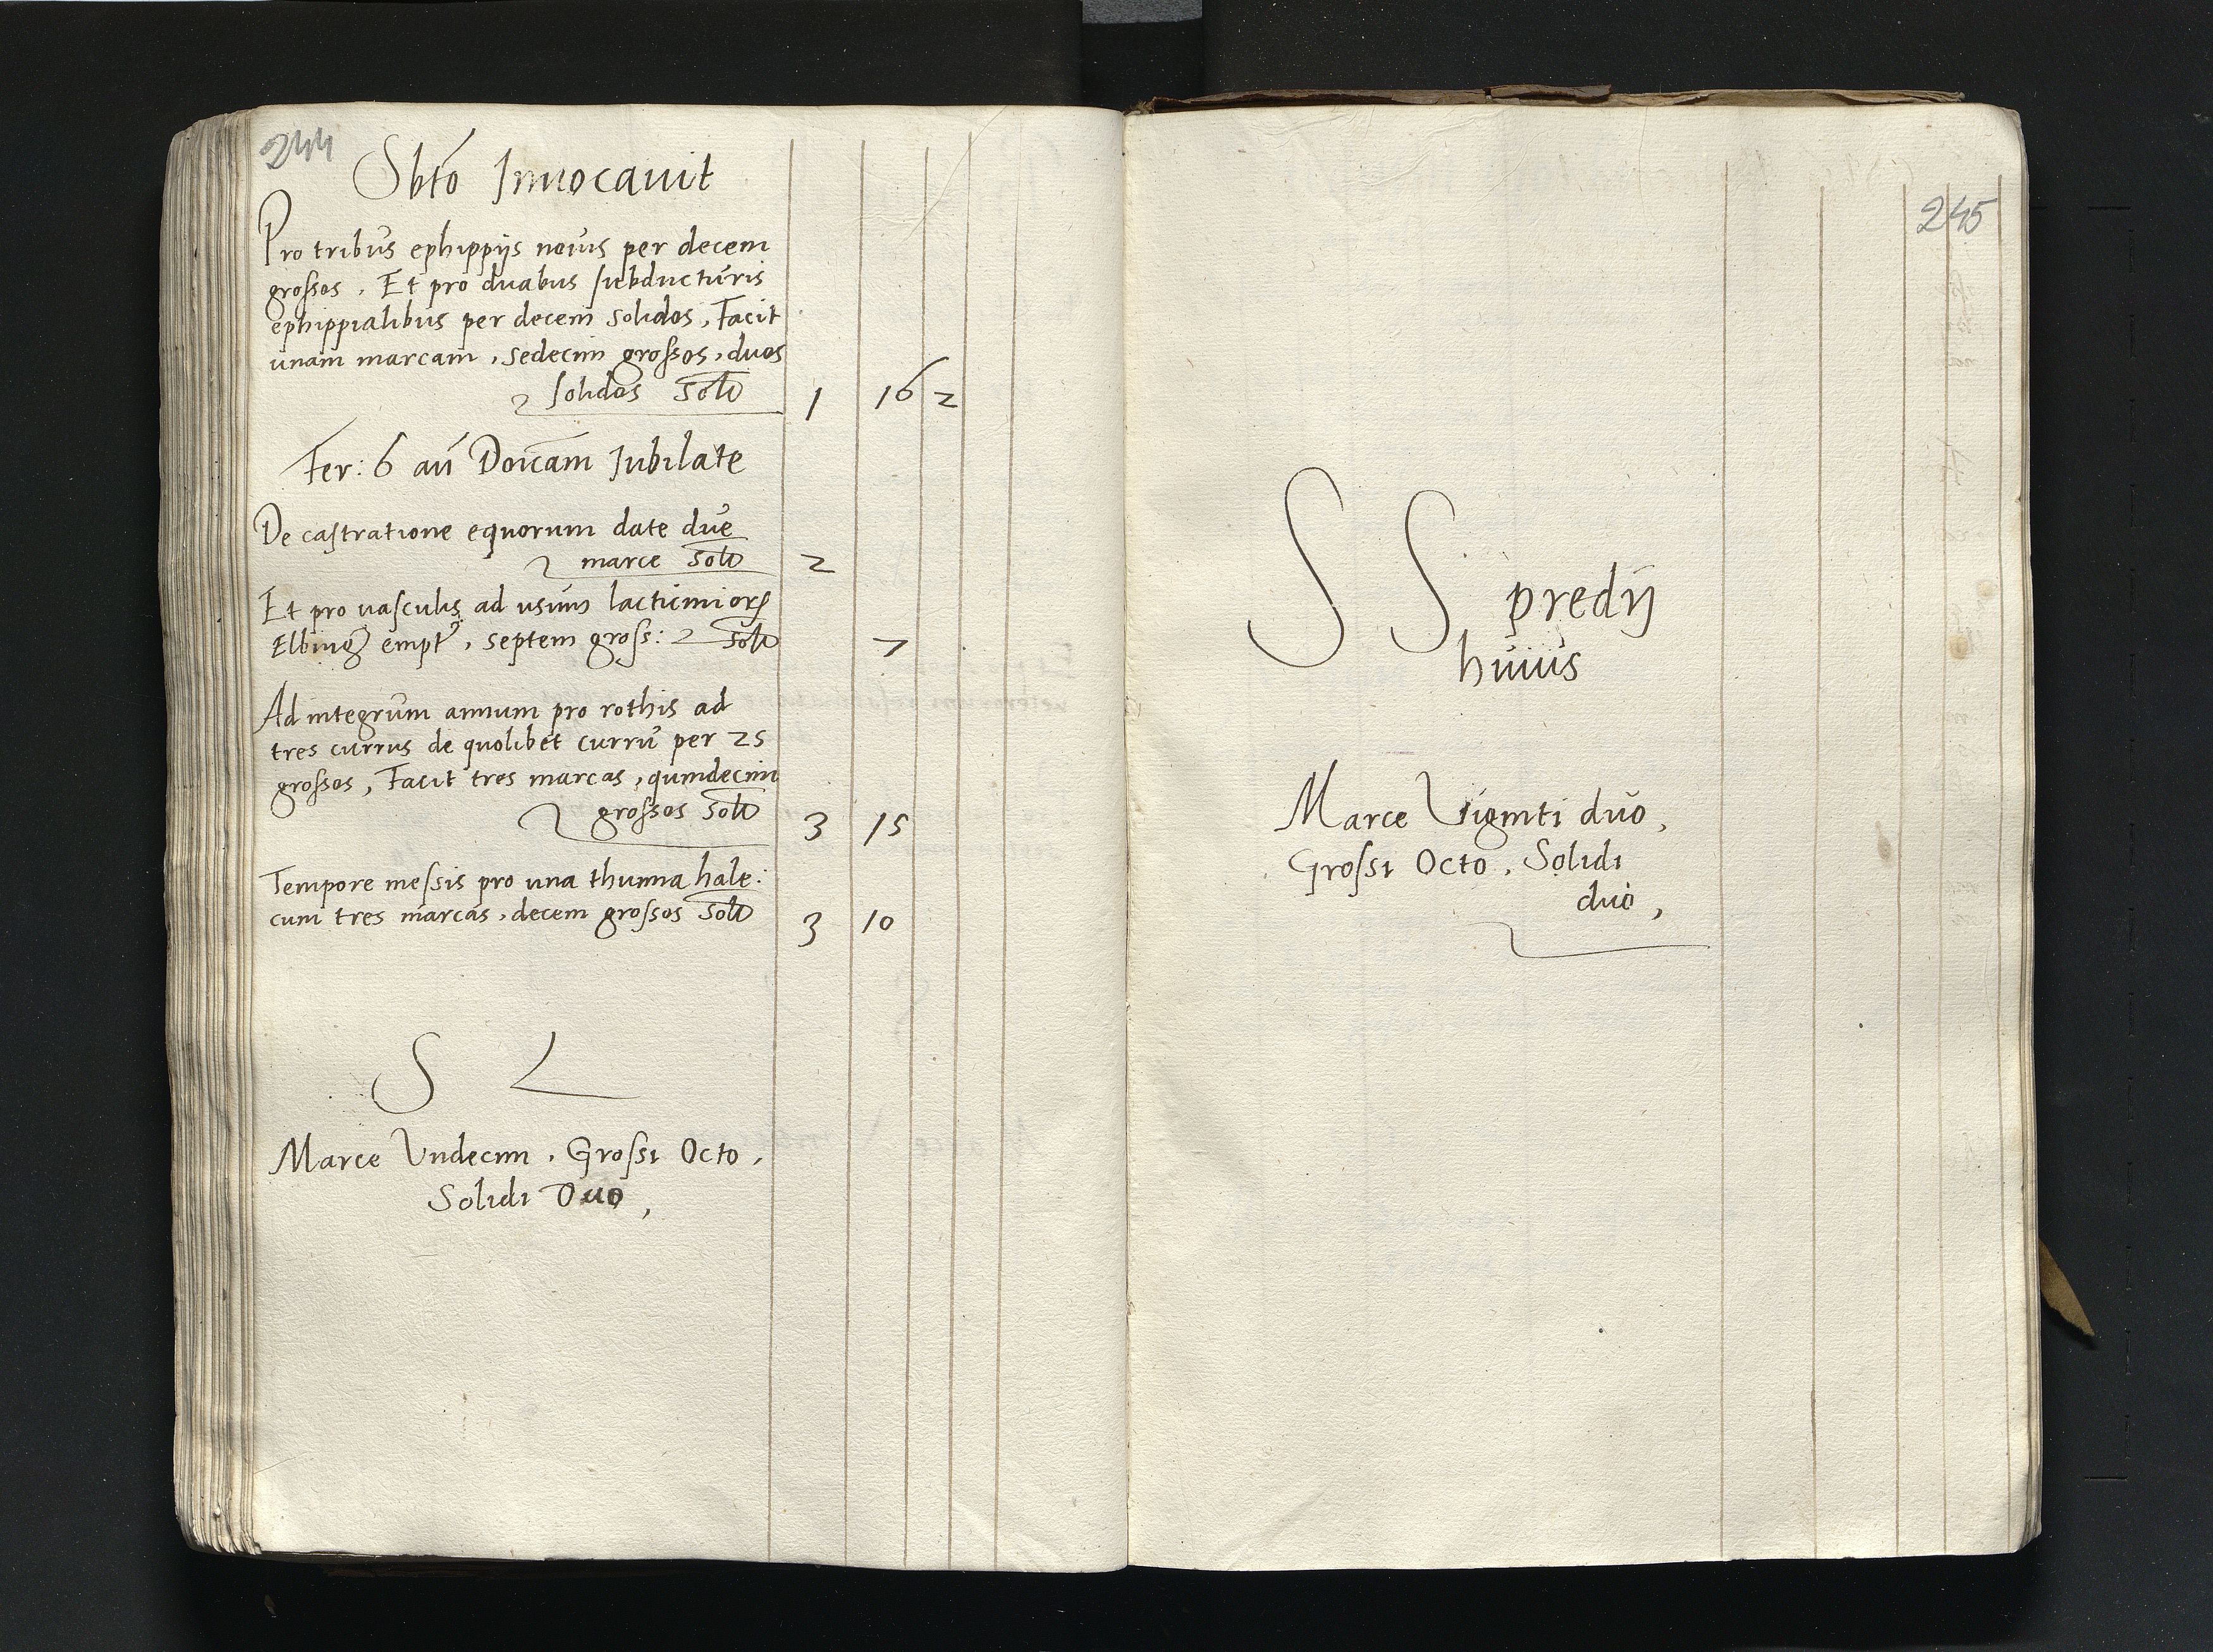 244
Sbto Inuocauit
Pro tribus ephippijs novis per decem
grossos, Et pro duabus subducturis
ephippialibus per decem solidos, Facit
unam marcam, sedecim grossos, duos
solidos solo 1 16 2
Fer: 6 an Doicam Iubilate
De castratione equorum date due
marce solo 2
Et pro vasculis ad usum lacticinior
Elbing empt, septem gross: solo 7
Ad integrum annum pro rothis ad
tres currus de quolibet curru per 25
grossos, Facit tres marcas, quindecim
grossos solo 3 15
Tempore messis pro una thunna hale:
cum tres marcas, decem grossos solo 3 10
S L
Marce Undecim, Grossi Octo,
Solidi Duo,
245
S S predij
huius
Marce Viginti duo,
Grossi Octo, Solidi
duo,